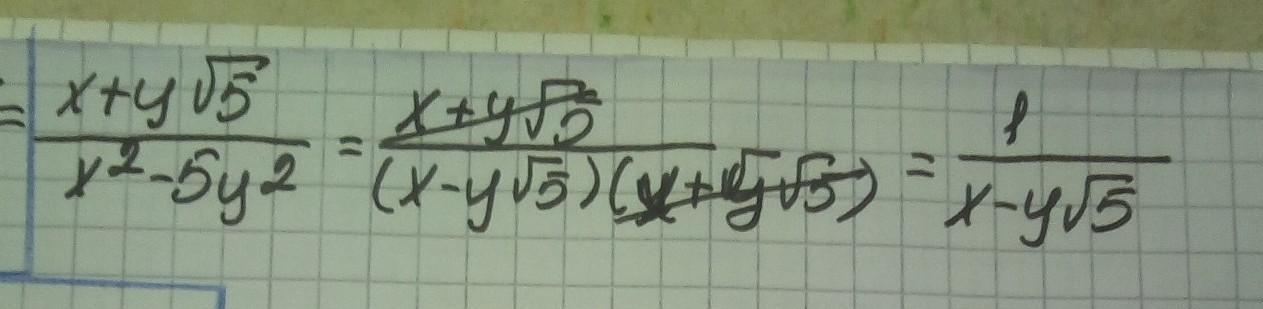 = (x+y√5)/(x²-5y²) = (x+y√5)/((x-y√5)(x+y√5)) = 1/(x-y√5)